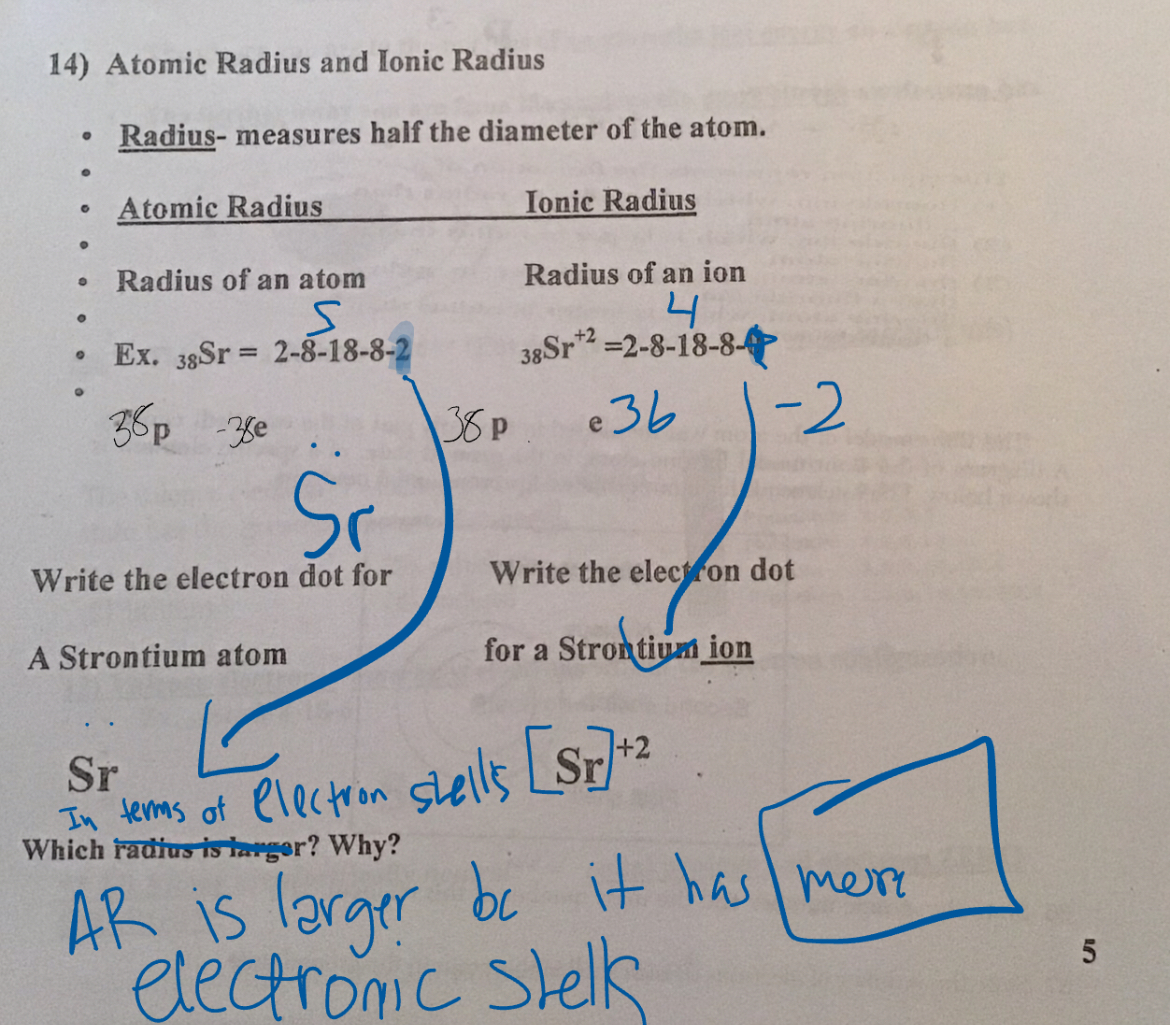 14) Atomic Radius and Ionic Radius
• Radius- measures half the diameter of the atom.
• Atomic Radius Ionic Radius
• Radius of an atom Radius of an ion
5 4
• Ex. 38Sr = 2-8-18-8-2 38Sr+2 =2-8-18-8-
38 p -38e 38 p e 36 -2
Sr
Write the electron dot for Write the electron dot
A Strontium atom for a Strontium ion
Sr [Sr]+2
In terms of electron shells
Which radius is larger? Why?
AR is larger bc it has more
electronic shells
5